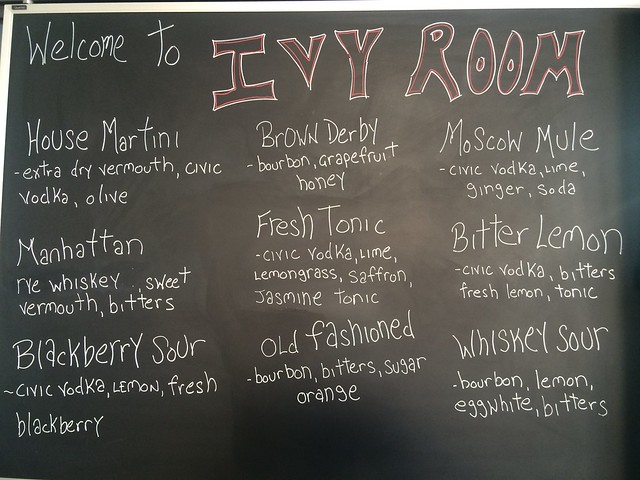 Welcome to IVY ROOM
House Martini
-extra dry vermouth, civic
vodka, olive
Manhattan
rye whiskey, sweet
vermouth, bitters
Blackberry Sour
~civic vodka, lemon, fresh
blackberry
Brown Derby
-bourbon, grapefruit
honey
Fresh Tonic
-civic vodka, lime,
lemongrass, saffron,
Jasmine tonic
Old fashioned
-bourbon, bitters, sugar
orange
Moscow Mule
-civic vodka, lime,
ginger, soda
Bitter Lemon
-civic vodka, bitters
fresh lemon, tonic
Whiskey Sour
-bourbon, lemon,
eggwhite, bitters